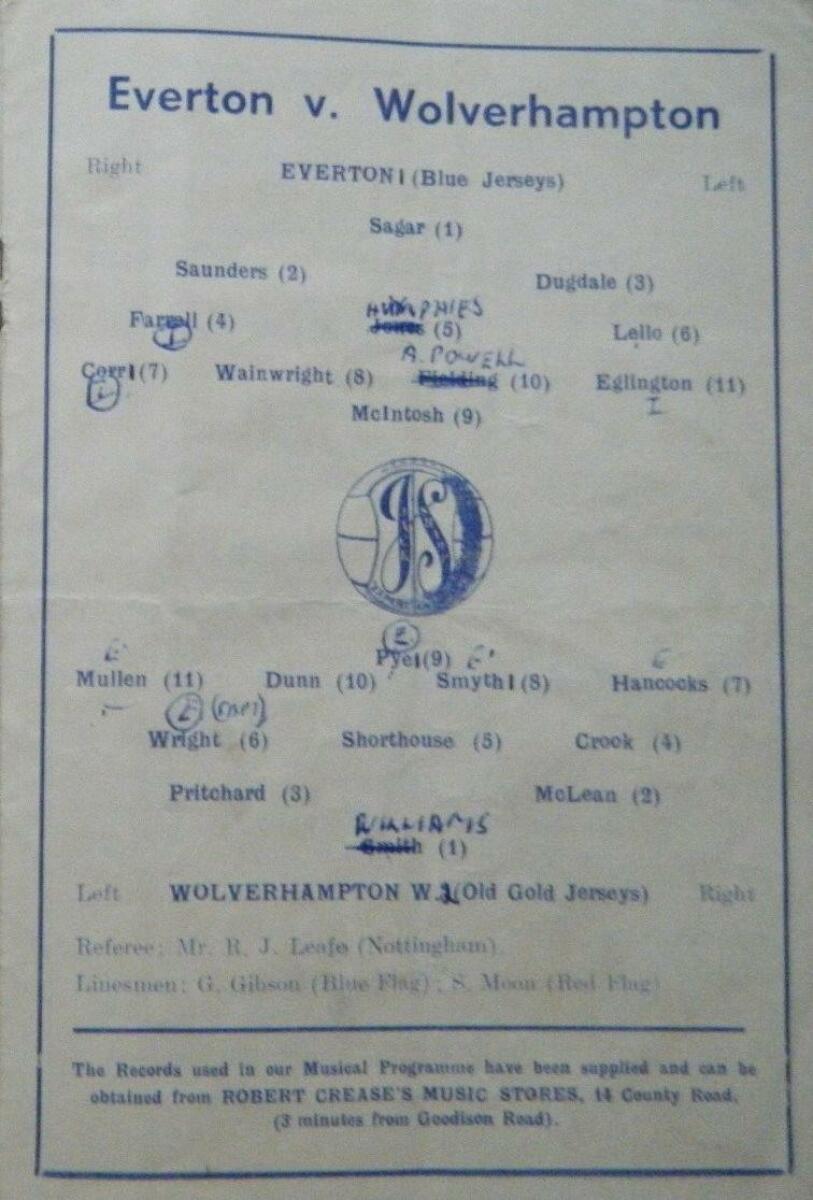 Everton v. Wolverhampton
Right EVERTON 1 (Blue Jerseys) Left
Sagar (1)
Saunders (2) Dugdale (3)
HUMPHIES
Farrell (4) Jones (5) Lello (6)
I
A. POWELL
Corr 1 (7) Wainwright (8) Fielding (10) Eglington (11)
I I
McIntosh (9)
E
Pye 1 (9)
E E E
Mullen (11) Dunn (10) Smyth 1 (8) Hancocks (7)
E (CAPT)
Wright (6) Shorthouse (5) Crook (4)
Pritchard (3) McLean (2)
WILLIAMS
Smith (1)
Left WOLVERHAMPTON W. 2 (Old Gold Jerseys) Right
Referee: Mr. R. J. Leafe (Nottingham).
Linesmen: G. Gibson (Blue Flag); S. Moon (Red Flag)
The Records used in our Musical Programme have been supplied and can be
obtained from ROBERT CREASE'S MUSIC STORES, 14 County Road,
(3 minutes from Goodison Road).